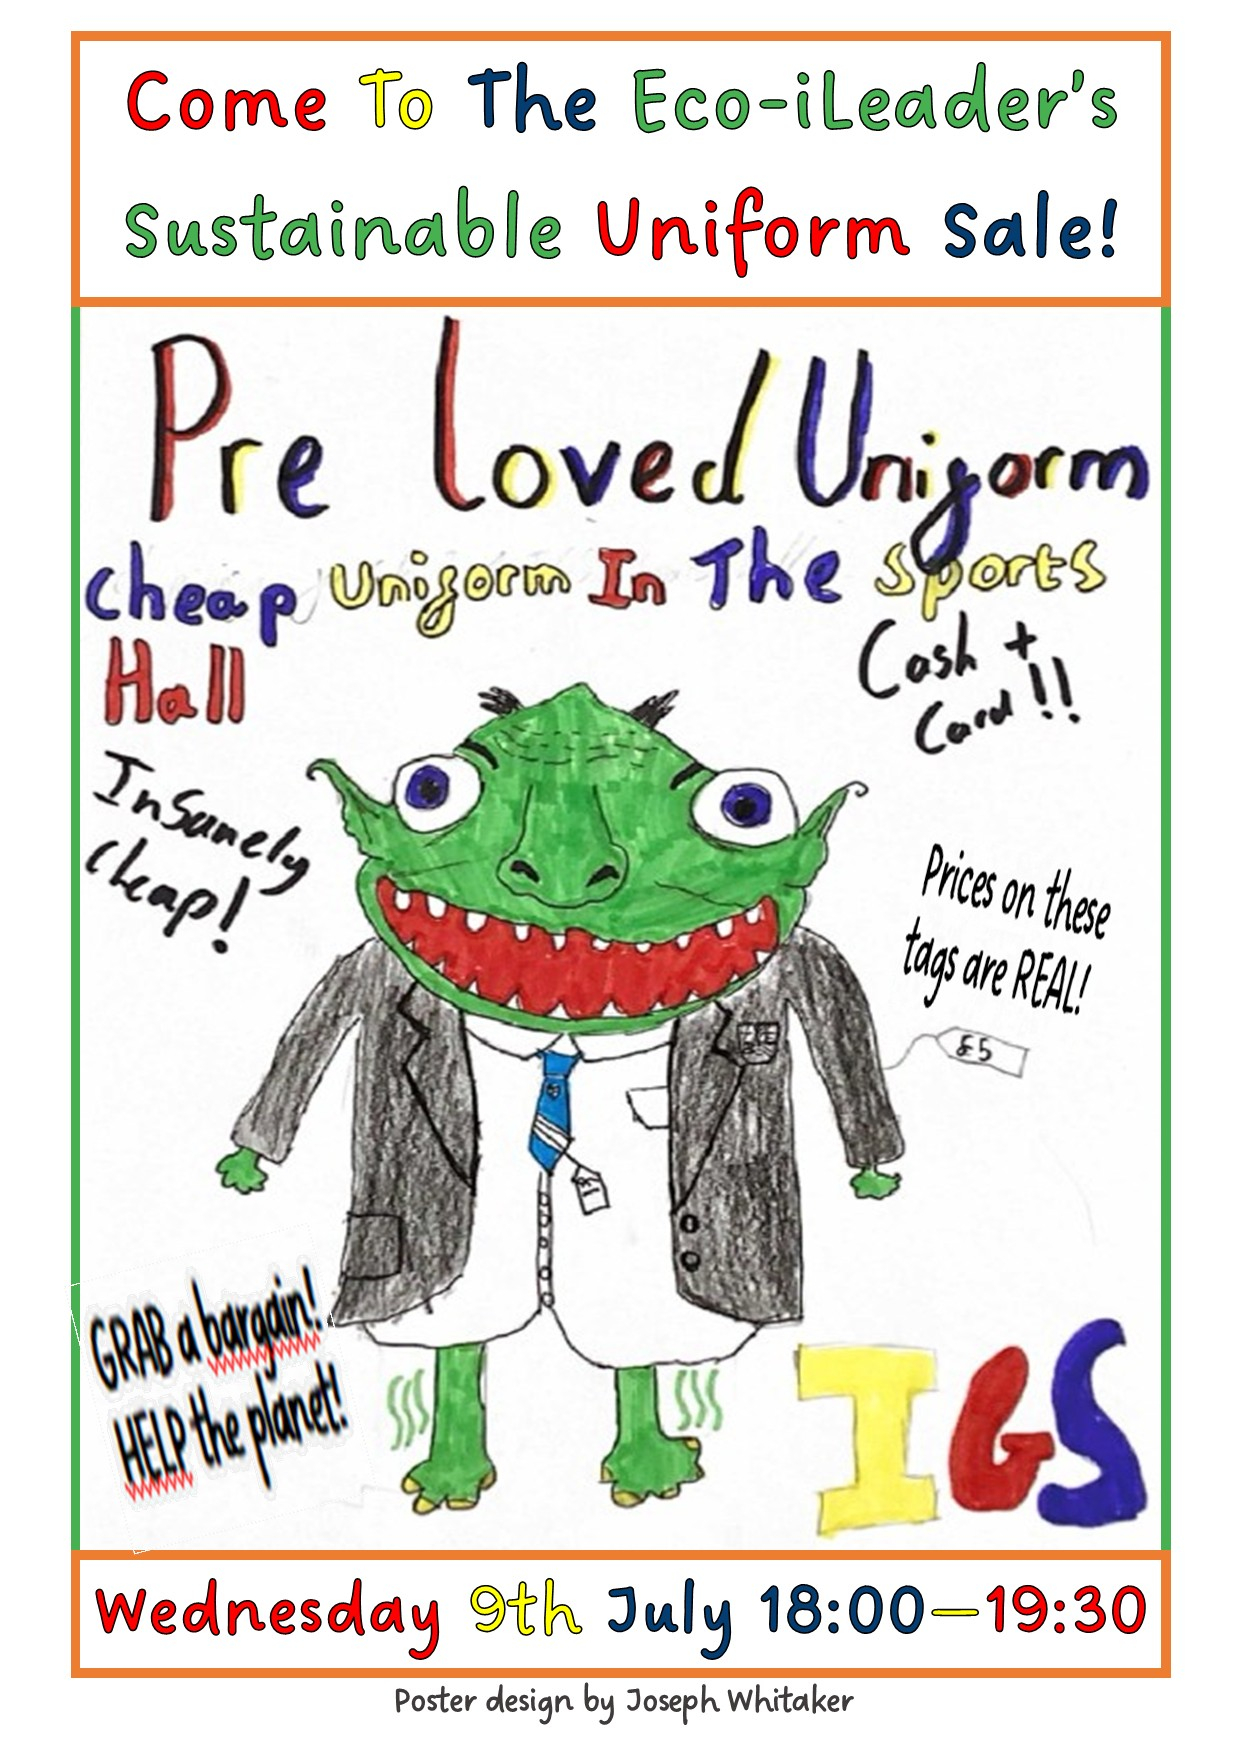 Come To The Eco-iLeader's
Sustainable Uniform Sale!
Pre Loved Uniform
Cheap Uniform In The Sports
Hall
Cash +
Card!!
Insanely
Cheap!
Prices on these
tags are REAL!
£5
£1
GRAB a bargain!
HELP the planet!
IGS
Wednesday 9th July 18:00—19:30
Poster design by Joseph Whitaker